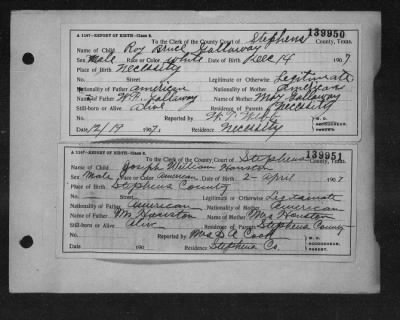 A 1167-REPORT OF BIRTH-Class 8. 139950
To the Clerk of the County Court of Stephens County, Texas.
Name of Child Roy Bruce Gallaway
Sex Male Race or Color white Date of Birth Dec 14 1907
Place of Birth Necessity
Legitimate or Otherwise Legitimate
Nationality of Father American Nationality of Mother American
Name of Father W. H. Gallaway Name of Mother May Gallaway
Still-born or Alive alive Residence of Parents Necessity
Reported by W. T. M. D.
Date 12/19 1907. Residence Necessity PARENT.
A 1167-REPORT OF BIRTH-Class 8. 139951
To the Clerk of the County Court of Stephens County, Texas.
Name of Child Joseph William Houston
Sex Male Race or Color American Date of Birth 2 April 1907
Place of Birth Stephens County
Street Legitimate or Otherwise Legitimate
Nationality of Father American Nationality of Mother American
Name of Father Mr Houston Name of Mother Mrs Houston
Still-born or Alive Alive Residence of Parents Stephens County
Reported by Mrs D A Cook M. D.
Date 190 Residence Stephens Co. PARENT.